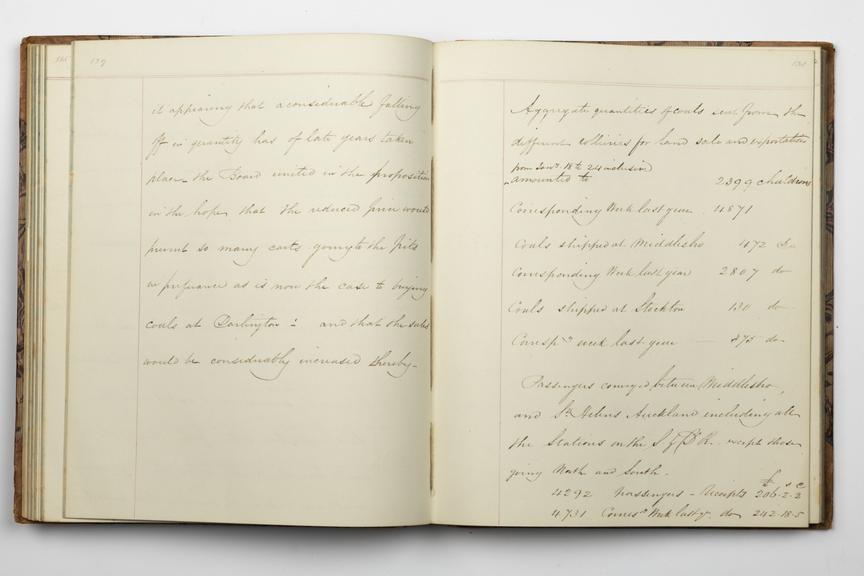 129
it appearing that a considerable falling
off in quantity has of late years taken
place the Board united in the proposition
in the hope that the reduced price would
prevent so many carts going to the Pits
in preference as is now the case to buying
coals at Darlington and that the sales
would be considerably increased thereby -
130
Aggregate quantities of coals sent from the
different Collieries for land sale and exportation
from Jany 18 to 24 inclusive
amounted to 2399 chaldrons
Corresponding Week last year 4871
Coals shipped at Middlesbro 472 Do
Corresponding Week last year 2807 do
Coals shipped at Stockton 130 do
Corresp week last year 375 do
Passengers conveyed between Middlesbro
and St Helens Auckland including all
the Stations on the S & D R. except those
going North and South -
£ s d
4292 Passengers - Receipts 206-2-2
4731 Corresg Week last yr do 242-18-5